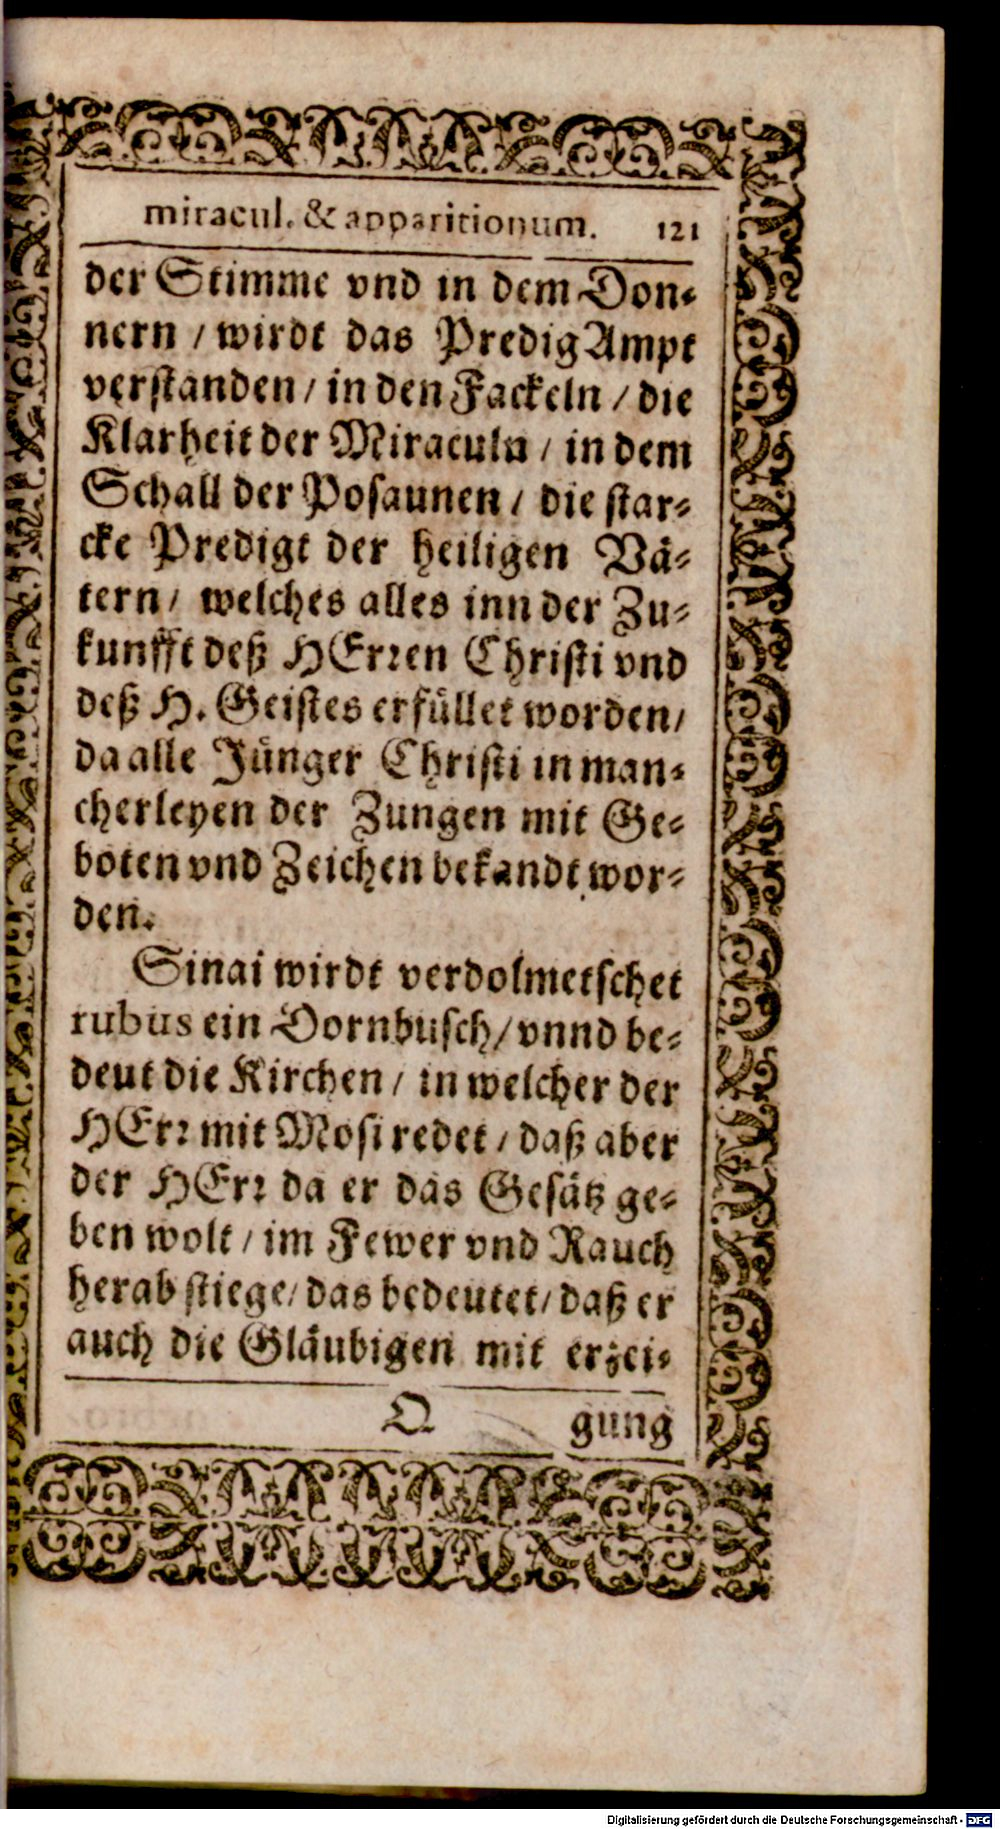 miracul. & apparitionum. 121
der Stimme vnd in dem Don-
nern / wirdt das PredigAmpt
verstanden / in den Fackeln / die
Klarheit der Miraculn / in dem
Schall der Posaunen / die star-
cke Predigt der heiligen Vä-
tern / welches alles inn der Zu-
kunfft deß HErren Christi vnd
deß H. Geistes erfüllet worden /
da alle Jünger Christi in man-
cherleyen der Zungen mit Ge-
boten vnd Zeichen bekandt wor-
den.
Sinai wirdt verdolmetschet
rubus ein Dornbusch / vnnd be-
deut die Kirchen / in welcher der
HErr mit Mosi redet / daß aber
der HErr da er das Gesätz ge-
ben wolt / im Fewer vnd Rauch
herab stiege / das bedeutet / daß er
auch die Gläubigen mit erzei-
Q gung
Digitalisierung gefördert durch die Deutsche Forschungsgemeinschaft - DFG